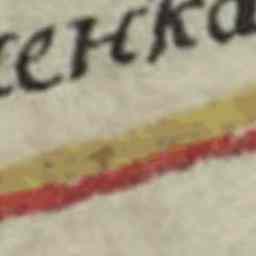 енка